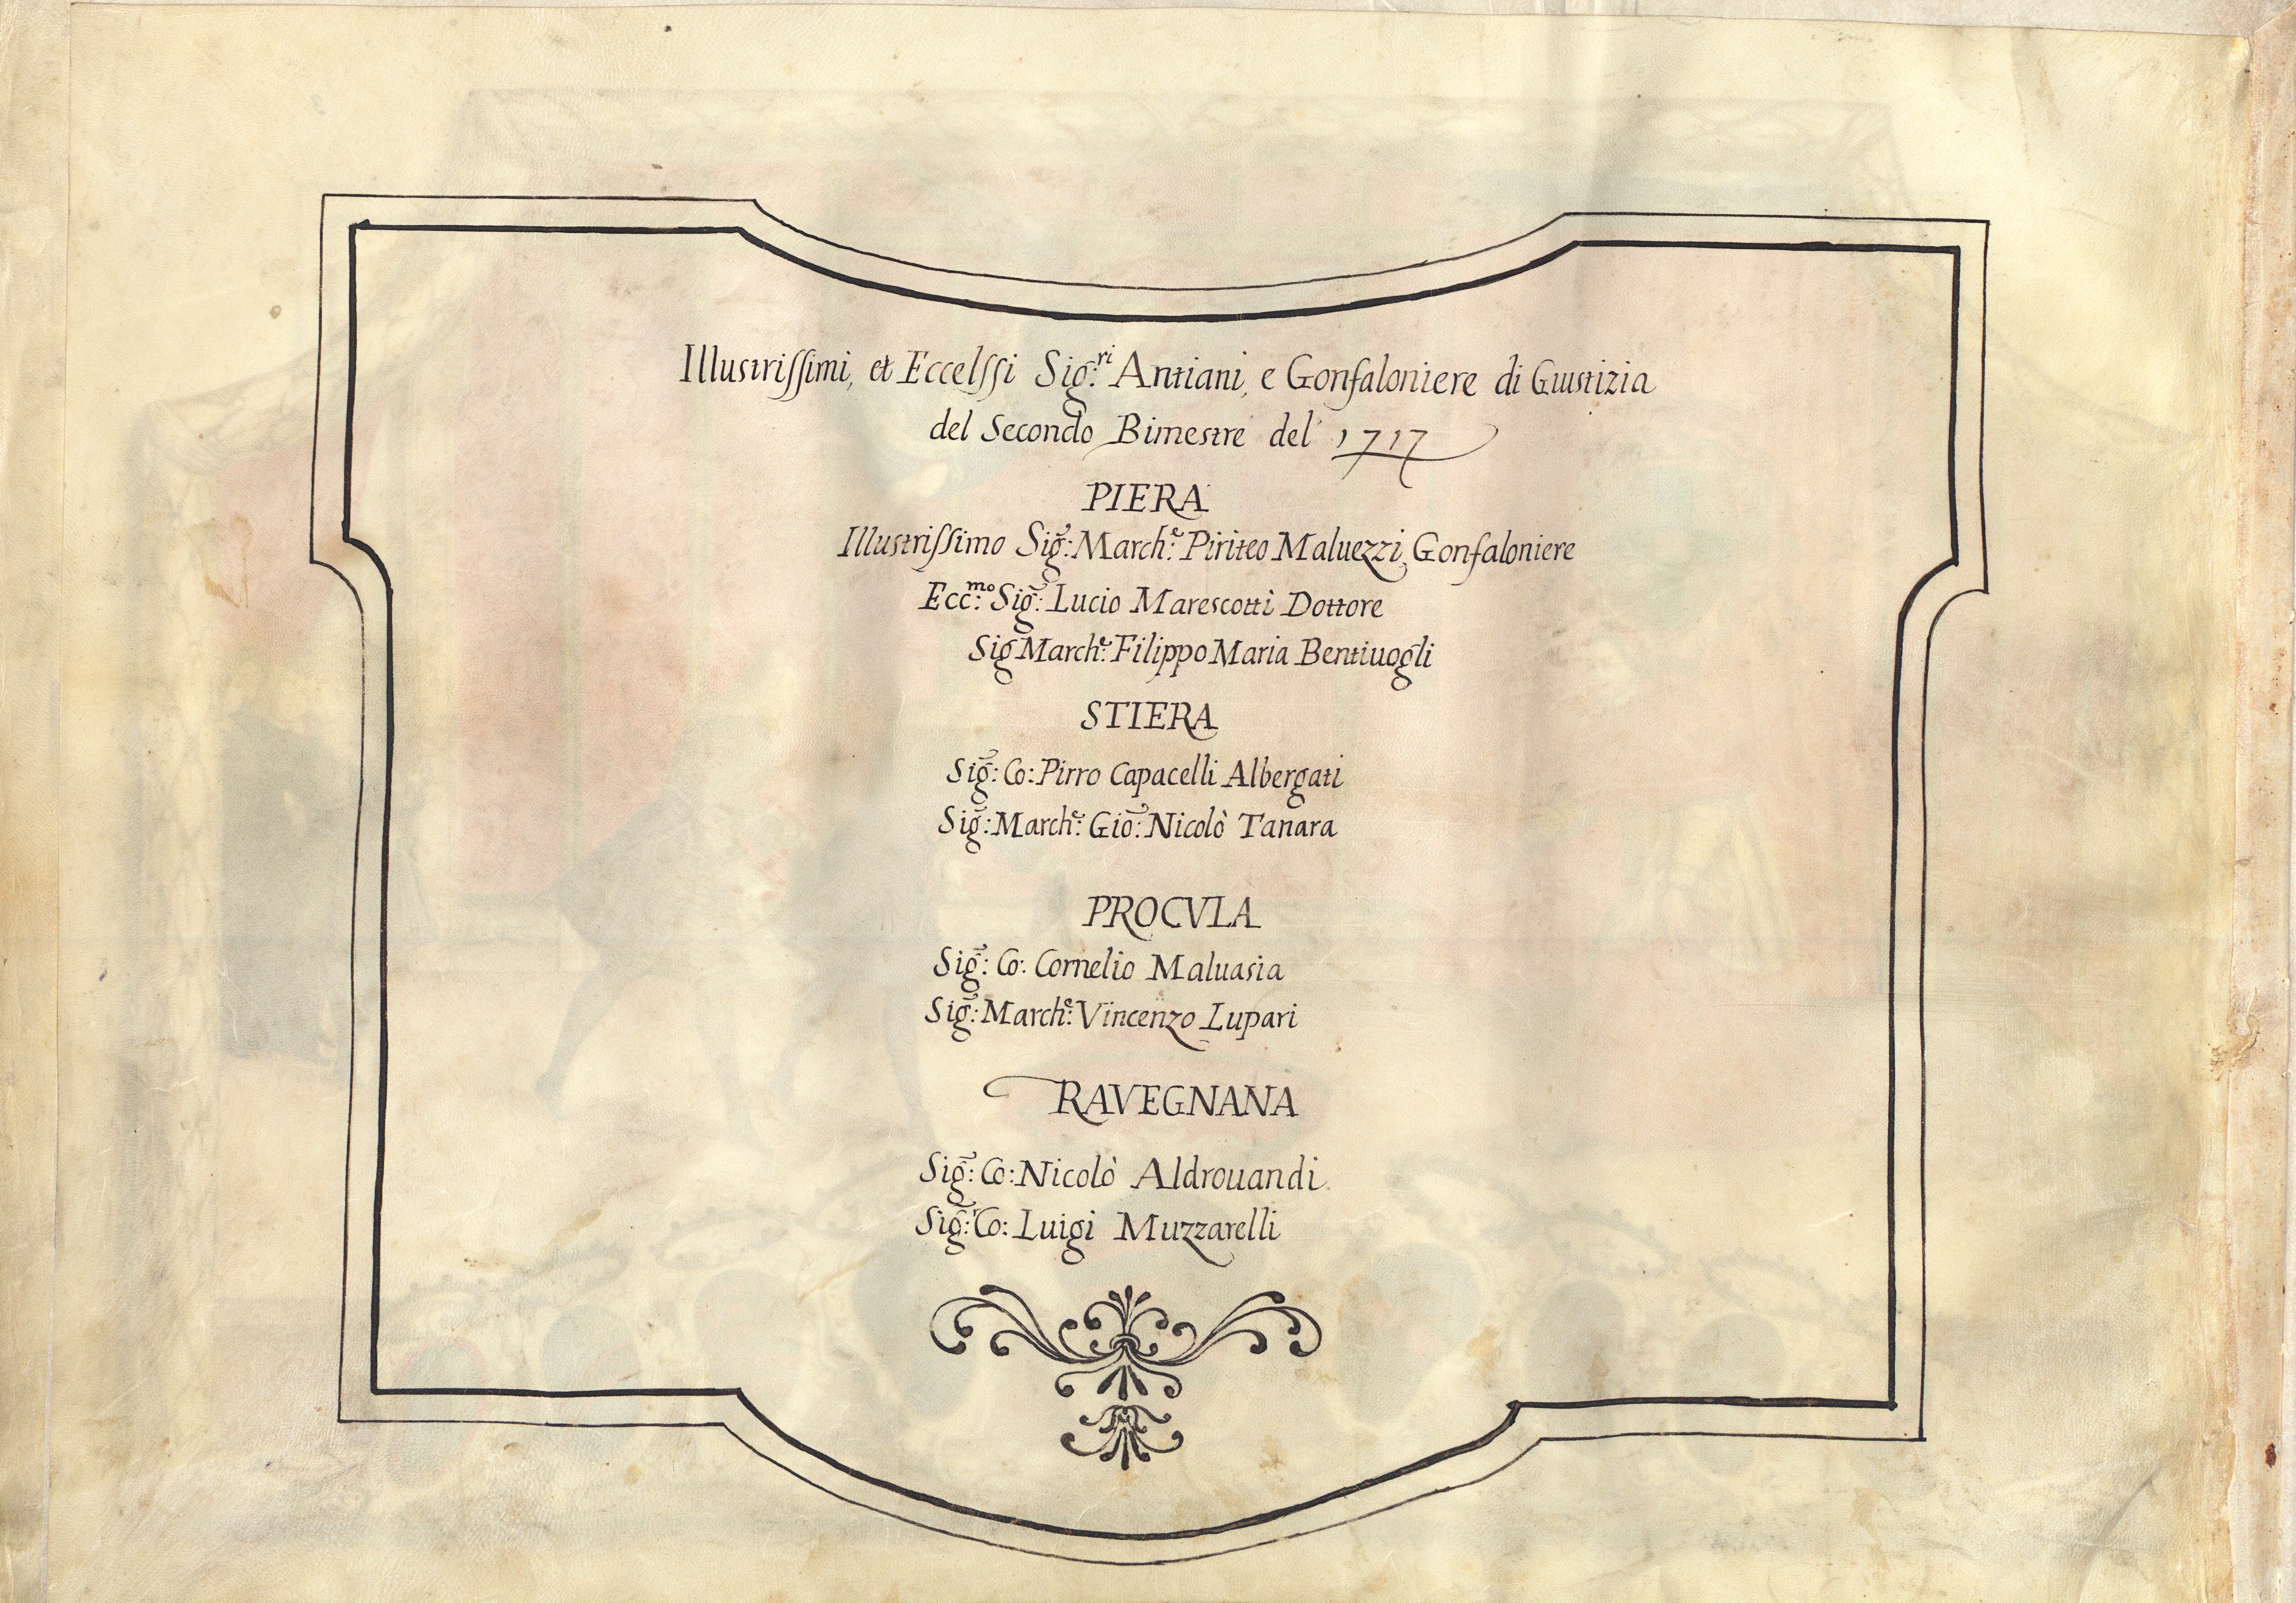 Illustrissimi, et Eccelssi Sig:ri Antiani, e Gonfaloniere di Giustizia
del Secondo Bimestre del 1717
PIERA
Illustrissimo Sig: March:e Piriteo Maluezzi, Gonfaloniere
Ecc:mo Sig: Lucio Marescotti Dottore
Sig March:e Filippo Maria Bentiuogli
STIERA
Sig: Co: Pirro Capacelli Albergati
Sig: March:e Gio: Nicolò Tanara
PROCVLA
Sig: Co: Cornelio Maluasia
Sig: March:e Vincenzo Lupari
RAVEGNANA
Sig: Co: Nicolò Aldrouandi
Sig: Co: Luigi Muzzarelli